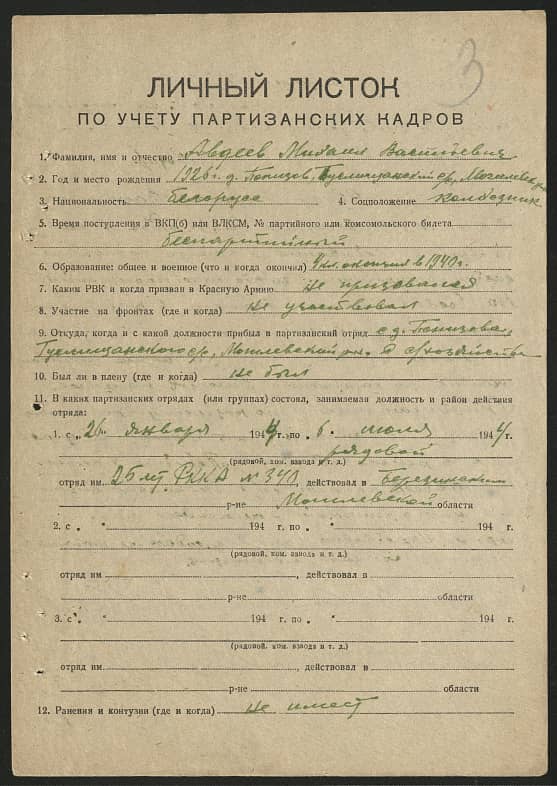 3
ЛИЧНЫЙ ЛИСТОК
ПО УЧЕТУ ПАРТИЗАНСКИХ КАДРОВ
1. Фамилия, имя и отчество Авдеев Михаил Васильевич
2. Год и место рождения 1926 г. д.
3. Национальность белорусс 4. Соцположение колхозник
5. Время поступления в ВКП(б) или ВЛКСМ, № партийного или комсомольского билета
беспартийный
6. Образование: общее и военное (что и когда окончил) 4 кл. окончил в 1940 г.
7. Каким РВК и когда призван в Красную Армию не призывался
8. Участие на фронтах (где и когда) не участвовал
9. Откуда, когда и с какой должности прибыл в партизанский отряд с д.
р-н, Могилевской
10. Был ли в плену (где и когда) не был
11. В каких партизанских отрядах (или группах) состоял, занимаемая должность и район действия
отряда:
1. с „26 января 1944 г. по „6 июля 1944 г.
рядовой
(рядовой, ком. взвода и т. д.)
отряд им 25 лет РККА № 340, действовал в Березинском
р-не Могилевской области
2. с „ " 194 г. по „ " 194 г.
(рядовой, ком. взвода и т. д.)
отряд им , действовал в
р-не области
3. с „ " 194 г. по „ " 194 г.
(рядовой, ком. взвода и т. д.)
отряд им , действовал в
р-не области
12. Ранения и контузии (где и когда) не имеет